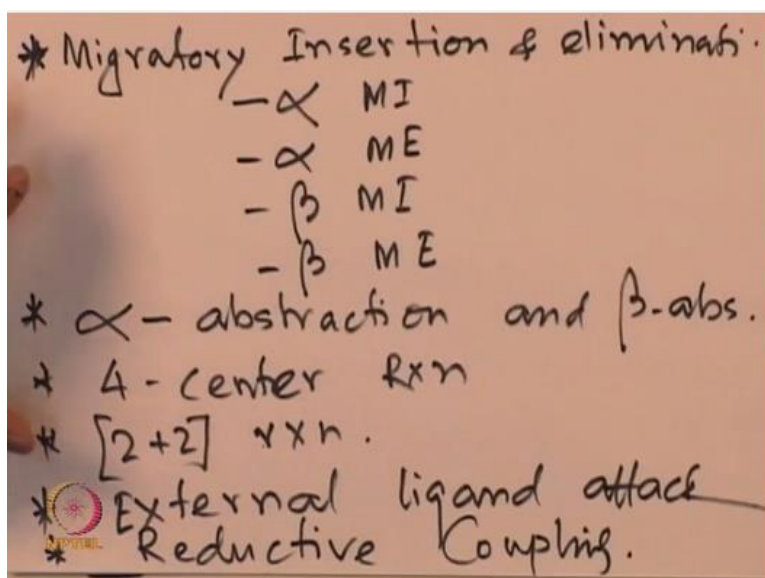 * Migratory Insertion & eliminati.
- α MI
- α ME
- β MI
- β ME
* α - abstraction and β-abs.
* 4 - center Rxn
* [2+2] rxn.
* External ligand attack
* Reductive Coupling.
NPTEL